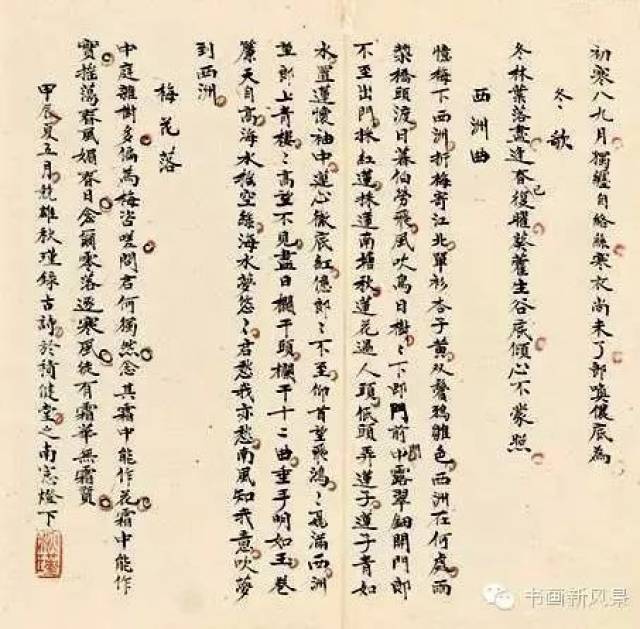 初寒八九月獨纏自絡絲寒衣尚未了郎喚儂底為
冬歌
冬林葉落盡逢春已復曜葵藿生谷底傾心不蒙照
西洲曲
憶梅下西洲折梅寄江北單衫杏子黃双鬢鴉雛色西洲在何處兩
槳橋頭渡日暮伯勞飛風吹烏日樹〻下郎門前門中露翠鈿開門郎
不至出門採紅蓮採蓮南塘秋蓮花過人頭低頭弄蓮子蓮子青如
水置蓮懷袖中蓮心徹底紅憶郎〻不至仰首望飛鴻〻飛滿西洲
望郎上青樓〻高望不見盡日欄干頭欄干十二曲垂手明如玉卷
簾天自高海水搖空綠海水夢悠〻君愁我亦愁南風知我意吹夢
到西洲
梅花落
中庭雜樹多偏為梅咨嗟問君何獨然念其霜中能作花霜中能作
實搖蕩春風媚春日念爾零落逐寒風徒有霜華無霜質
甲辰夏五月競雄秋瑾錄古詩於綺健堂之南窓燈下
秋瑾
书画新风景